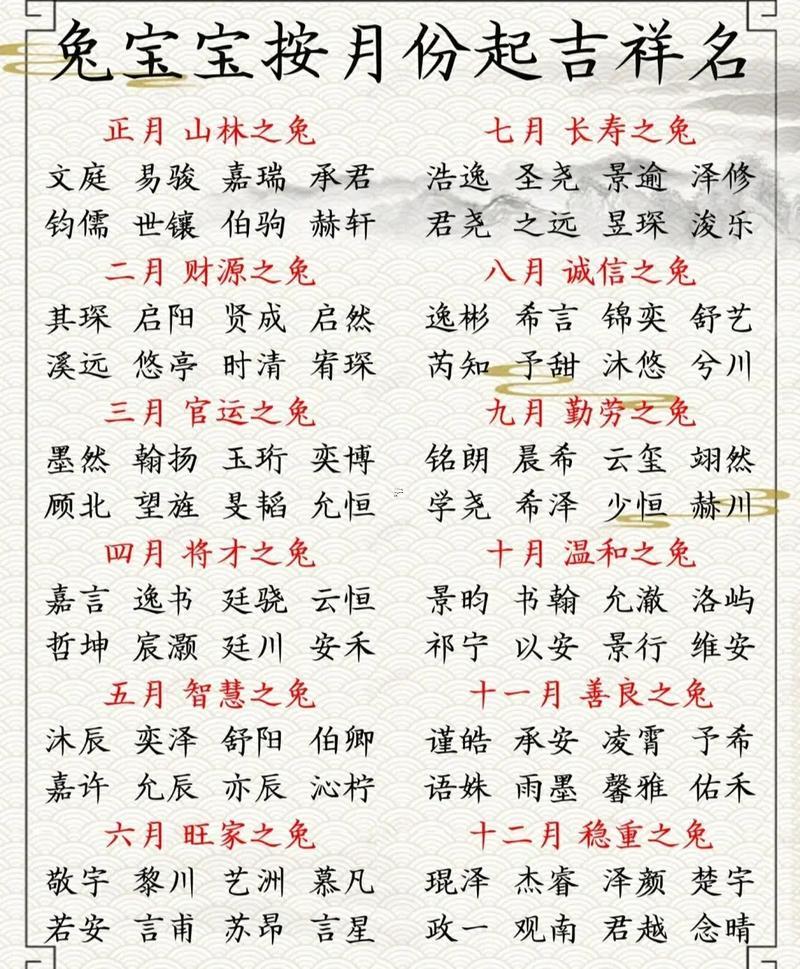 兔宝宝按月份起吉祥名
正月 山林之兔
文庭 易骏 嘉瑞 承君
钧儒 世镶 伯驹 赫轩
二月 财源之兔
其琛 启阳 贤成 启然
溪远 悠亭 时清 宥琛
三月 官运之兔
墨然 翰扬 玉珩 奕博
顾北 望旌 旻韬 允恒
四月 将才之兔
嘉言 逸书 廷骁 云恒
哲坤 宸灏 廷川 安禾
五月 智慧之兔
沐辰 奕泽 舒阳 伯卿
嘉许 允辰 亦辰 沁柠
六月 旺家之兔
敬宇 黎川 艺洲 慕凡
若安 言甫 苏昂 言星
七月 长寿之兔
浩逸 圣尧 景逾 泽修
君尧 之远 昱琛 浚乐
八月 诚信之兔
逸彬 希言 锦奕 舒艺
芮知 予甜 沐悠 兮川
九月 勤劳之兔
铭朗 晨希 云玺 翊然
学尧 希泽 少恒 赫川
十月 温和之兔
景昀 书翰 允澈 洛屿
祁宁 以安 景行 维安
十一月 善良之兔
谨皓 承安 凌霄 予希
语姝 雨墨 馨雅 佑禾
十二月 稳重之兔
琨泽 杰睿 泽颜 楚宇
政一 观南 君越 念晴